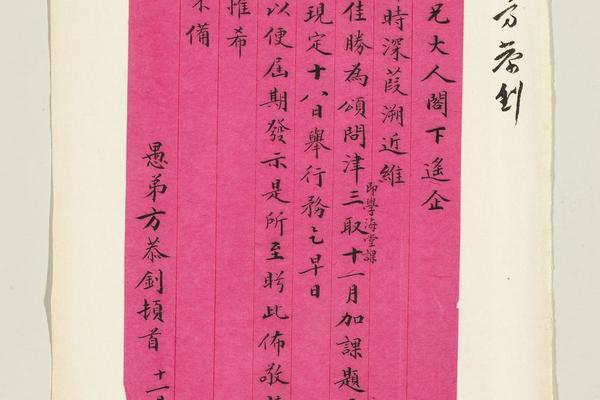 方恭釗
兄大人閣下遙企
時深葭溯近維
佳勝為頌問津三取十一月加課題
即學海堂課
現定十八日舉行務乞早日
以便屆期發示是所至盻此佈敬
惟希
備
愚弟方恭釗頓首 十一月